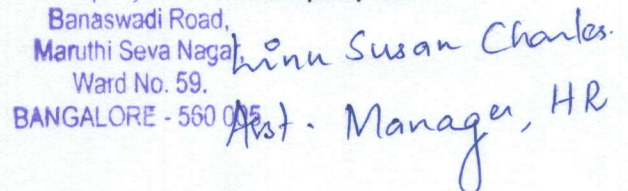 Banaswadi Road,
Maruthi Seva Nagar,
Ward No. 59.
BANGALORE - 560 005
Linu Susan Charles.
Asst. Manager, HR